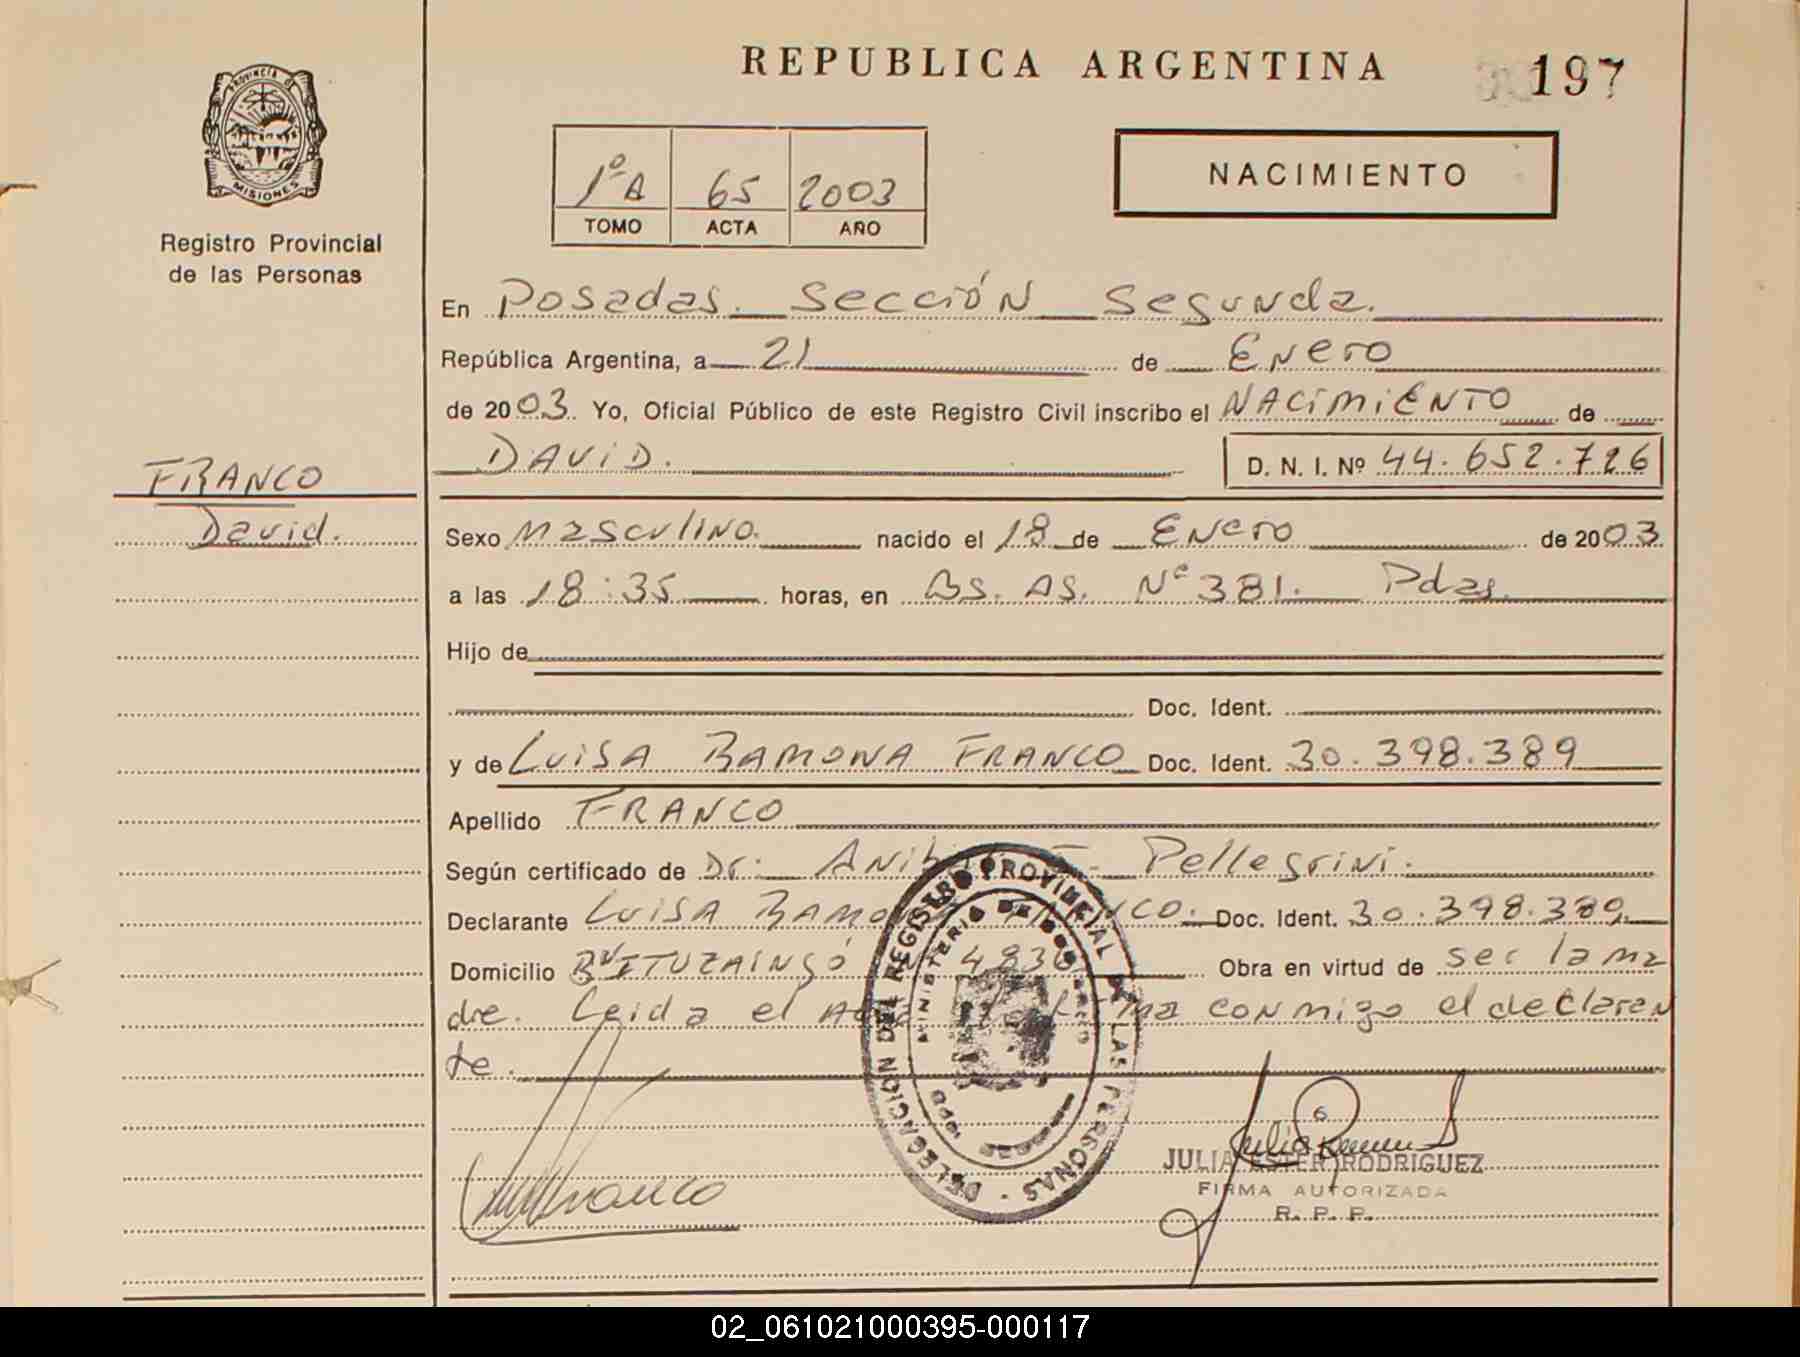 REPUBLICA ARGENTINA
197
PROVINCIA DE
MISIONES
Registro Provincial
de las Personas
1º A 65 2003
TOMO ACTA AÑO
NACIMIENTO
En Posadas. Sección Segunda.
República Argentina, a 21 de Enero
de 2003. Yo, Oficial Público de este Registro Civil inscribo el NACIMIENTO de
DAVID. D. N. I. Nº 44.652.726
FRANCO
David.
Sexo Masculino. nacido el 18 de Enero de 2003
a las 18:35 horas, en Bs. As. Nº 381. Pdas.
Hijo de
Doc. Ident.
y de LUISA RAMONA FRANCO Doc. Ident. 30.398.389
Apellido FRANCO
Según certificado de Dr. Pellegrini.
Declarante LUISA RAMONA FRANCO. Doc. Ident. 30.398.389
Domicilio Bº ITUZAINGÓ 4836 Obra en virtud de ser la ma
dre. Leida el conmigo el declaran
te.
DELEGACION DEL REGISTRO PROVINCIAL DE LAS PERSONAS
MINISTERIO DE GOBIERNO
Franco
JULIA ESTER RODRIGUEZ
FIRMA AUTORIZADA
R. P. P.
02_061021000395-000117